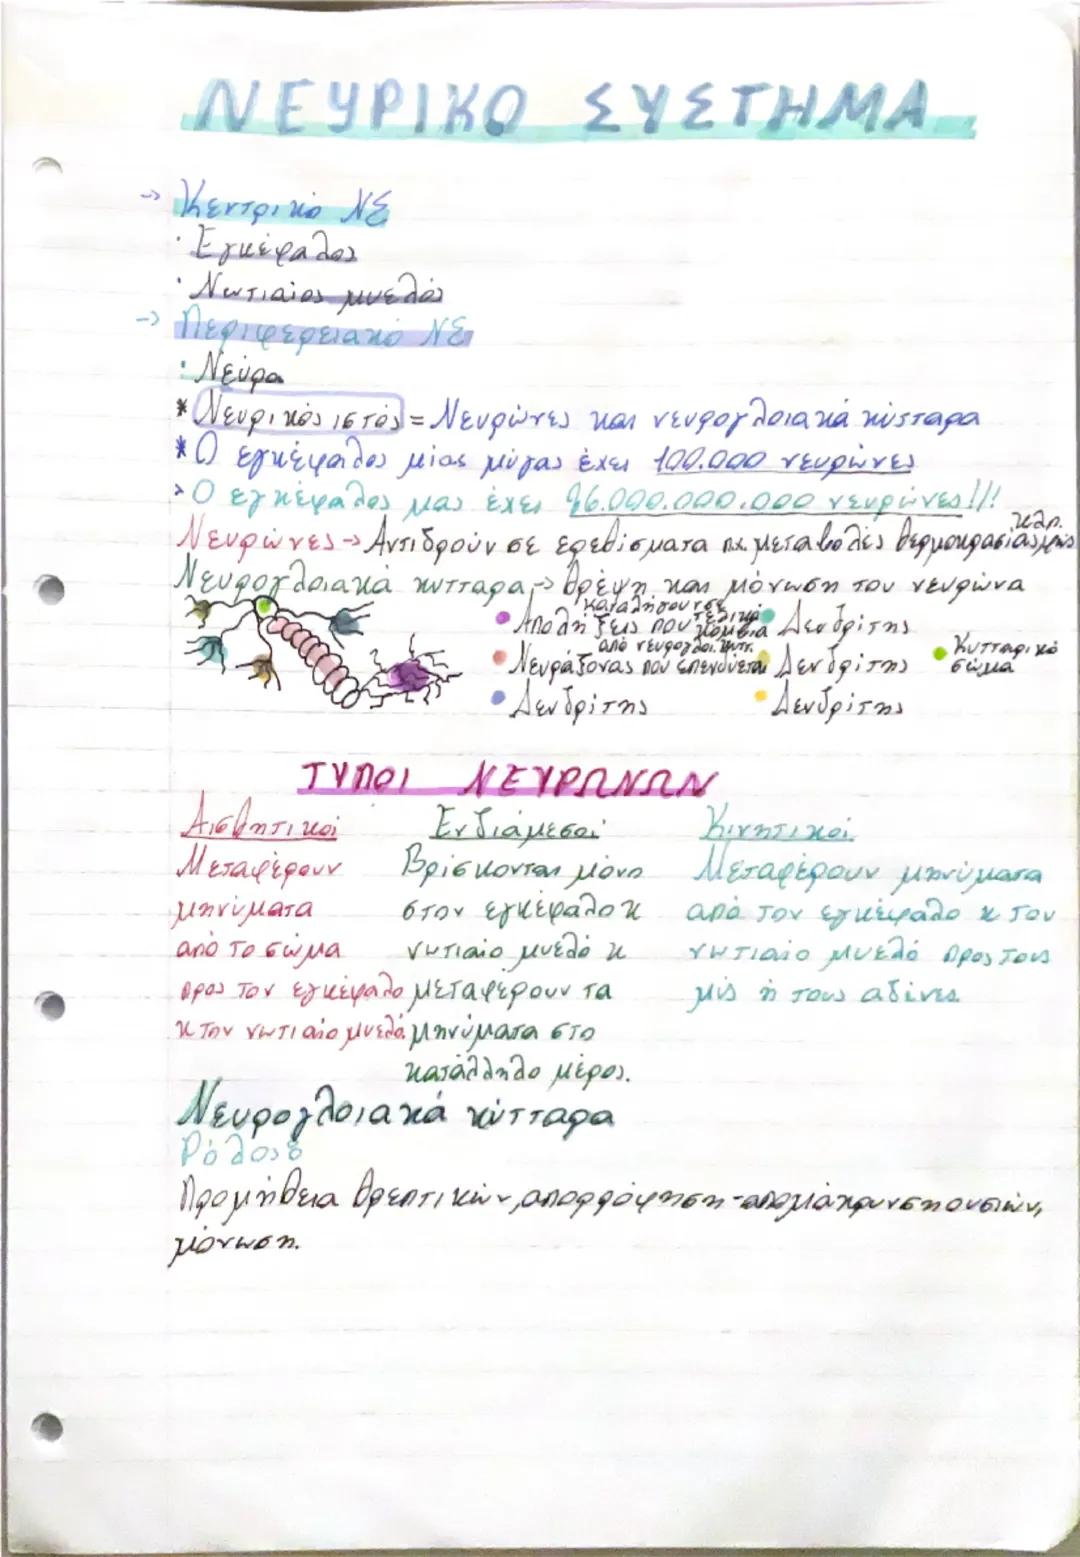 ΝΕΥΡΙΚΟ ΣΥΣΤΗΜΑ
-> Κεντρικό ΝΣ
· Εγκέφαλος
· Νωτιαίος μυελός
-> Περιφερειακό ΝΣ
· Νεύρα
* Νευρικός ιστός = Νευρώνες και νευρογλοιακά κύτταρα
* Ο εγκέφαλος μίας μύγας έχει 100.000 νευρώνες
> Ο εγκέφαλος μας έχει 86.000.000.000 νευρώνες!!!
Νευρώνες -> Αντιδρούν σε ερεθίσματα πχ. μεταβολές θερμοκρασίας, φως κλπ.
Νευρογλοιακά κύτταρα -> θρέψη και μόνωση του νευρώνα
• Απολήξεις που καταλήγουν σε τελικά κομβία • Δενδρίτης
• Νευράξονας που επενδύεται από νευρογλοι. κυττ. • Δενδρίτης • Κυτταρικό σώμα
• Δενδρίτης • Δενδρίτης
ΤΥΠΟΙ ΝΕΥΡΩΝΩΝ
Αισθητικοί
Μεταφέρουν
μηνύματα
από το σώμα
προς τον εγκέφαλο
κ τον νωτιαίο μυελό.
Ενδιάμεσοι
Βρίσκονται μόνο
στον εγκέφαλο κ
νωτιαίο μυελό κ
μεταφέρουν τα
μηνύματα στο
κατάλληλο μέρος.
Κινητικοί
Μεταφέρουν μηνύματα
από τον εγκέφαλο κ τον
νωτιαίο μυελό προς τους
μύς ή τους αδένες
Νευρογλοιακά κύτταρα
Ρόλος:
Προμήθεια θρεπτικών, απορρόφηση - απομάκρυνση ουσιών,
μόνωση.